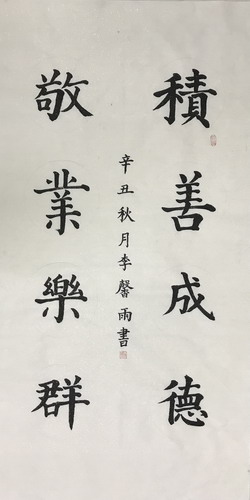 積善成德
敬業樂群
辛丑秋月李馨雨書